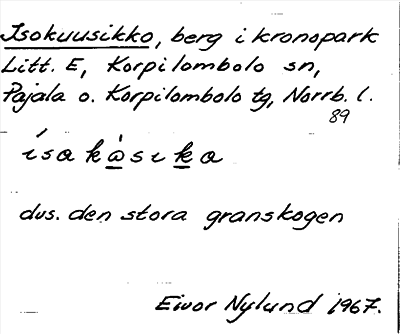 Isokuusikko, berg i kronopark
Litt. E, Korpilombolo sn,
Pajala o. Korpilombolo tg, Norrb. l.
89
ísakàsika
dvs. den stora granskogen
Eivor Nylund 1967.